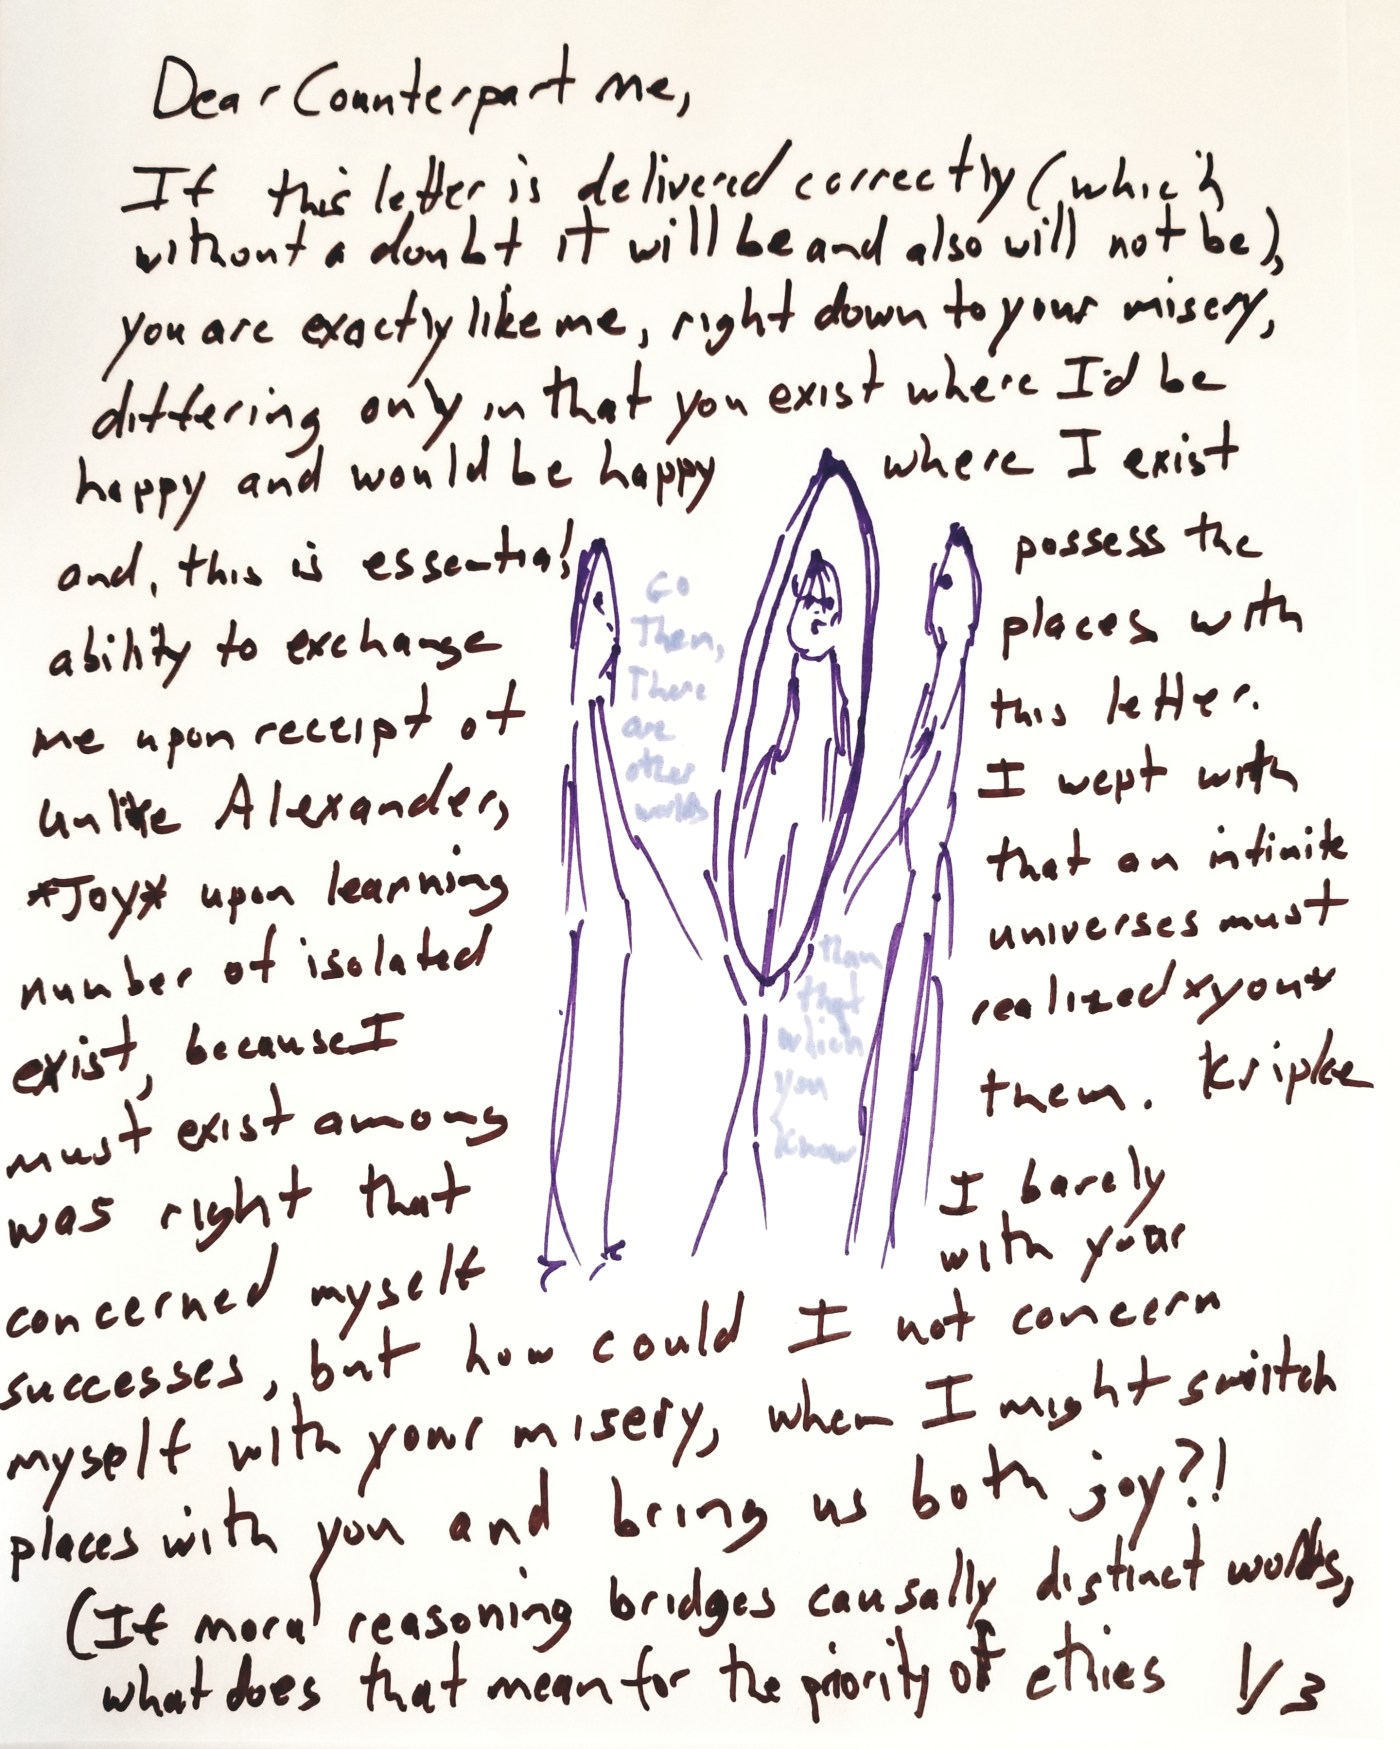 Dear Counterpart me,
If this letter is delivered correctly (which
without a doubt it will be and also will not be),
you are exactly like me, right down to your misery,
differing only in that you exist where I'd be
happy and would be happy where I exist
and, this is essential possess the
ability to exchange places with
me upon receipt of this letter.
Unlike Alexander, I wept with
*Joy* upon learning that an infinite
number of isolated universes must
exist, because I realized *you*
must exist among them. Kripke
was right that I barely
concerned myself with your
successes, but how could I not concern
myself with your misery, when I might switch
places with you and bring us both joy?!
(If moral reasoning bridges causally distinct worlds,
what does that mean for the priority of ethics
1/3
Go
Then,
There
are
other
worlds
than
that
which
you
know